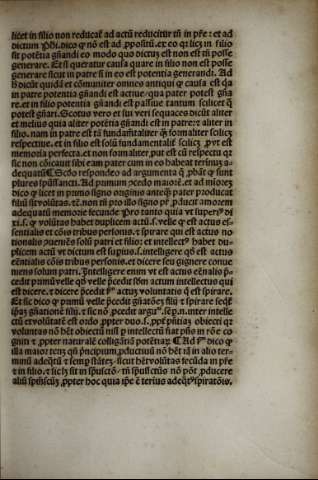 licet in filio non reducat̃ ad actũ reducitur tñ in p̃e: et ad
dictum P̃hi. dico ꝙ nõ est ad ꝓpositũ. ex eo ꝙ licꝫ in filio
sit potẽtia gñandi eo modo quo dictuꝫ est non est tñ posse
generare. Et si queratur causa quare in filio non est posse
generare sicut in patre sĩ in eo est potentia generandi. Ad
h̃ dicut quidã et cõmuniter omnes antiqui ꝙ causa est q̃a
in patre potentia gñandi est actiue. qua pater potest gña
re. et in filio potentia gñandi est passiue tantum scilicet q̃
potest gñari. Scotus vero et sui veri sequaces dicũt aliter
et melius quia aliter potẽtia gñandi est in patre ⁊ aliter in
filio. nam in patre est tã fundam̃taliter q̃ formaliter scilicꝫ
respectiue. et in filio est solũ fundamentalit̃ scilicꝫ ꝓut est
memoria perfecta. et non formaliter. put est cũ respectu qꝫ
sic non cõicaut sibi eam pater cum in eo habeat terminũ a-
dequatũ ¶ Scđo respondeo ad argumenta q̃ ꝓbãt ꝙ sunt
plures spũsancti. Ad primum ꝓcedo maiorẽ. et ad minorẽ
dico ꝙ licet in primo signo originis anteq̃ pater producat
filiũ sit volũtas. tñ. non tñ pro illo signo pr̃ ꝓducit amorem
adequatũ memorie fecunde Pro tanto quia vt superiꝰ di
xi. s. ꝙ volũtas habet duplicem actũ. s. velle ꝙ est actus es-
sentialis et cõis tribus personis. et spirare qui est actus no-
tionalis ꝓueniẽs solũ patri et filio: et intellectꝰ habet du-
plicem actũ vt dictum est supius. s. intelligere qđ est actus
eẽntialis cõis tribus persõnis. et dicere seu gignere conue
niens solum patri. Intelligere enim vt est actus eẽnalis p̃-
cedit primũ velle qđ velle p̃cedit sedm actum intellectus qui
est dicere. et dicere p̃cedit scđm actuꝫ voluntatis q̃ est spirare.
Et sic dico ꝙ primũ velle p̃cedit gñatõeꝫ filij et spirare sequit̃
ip̃aꝫ gñationẽ filij. et sic nõ ꝓcedit arguᵐ. Itẽ. n. inter intelle
ctũ et volũtatẽ est ordo ꝓpter duo. s. ꝓpt̃ p̃ntiaꝫ obiecti qꝫ
voluntas nõ h̃t obiectũ nisi p intellectũ fiat p̃ñs in rõne co
gniti et ꝓpter naturalẽ colligãtiã potẽtiaꝝ ¶ Ad ẜᵐ dico ꝙ
illa maior tenꝫ qñ p̃ncipium ꝓductiuũ nõ h̃t tñ in alio ter-
minũ adeq̃tũ et semp stãtẽ. sicut h̃t volũtas fecũda in p̃re
et in filio. et sic lꝫ sit in sp̃usctõ. tñ sp̃usctũs nõ põt ꝓducere
aliũ sp̃ũsctũꝫ. ꝓpter hoc quia ip̃e est terĩus adeq̃tꝰ spiratõis.